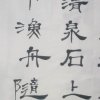 清泉石上
下漁舟隨